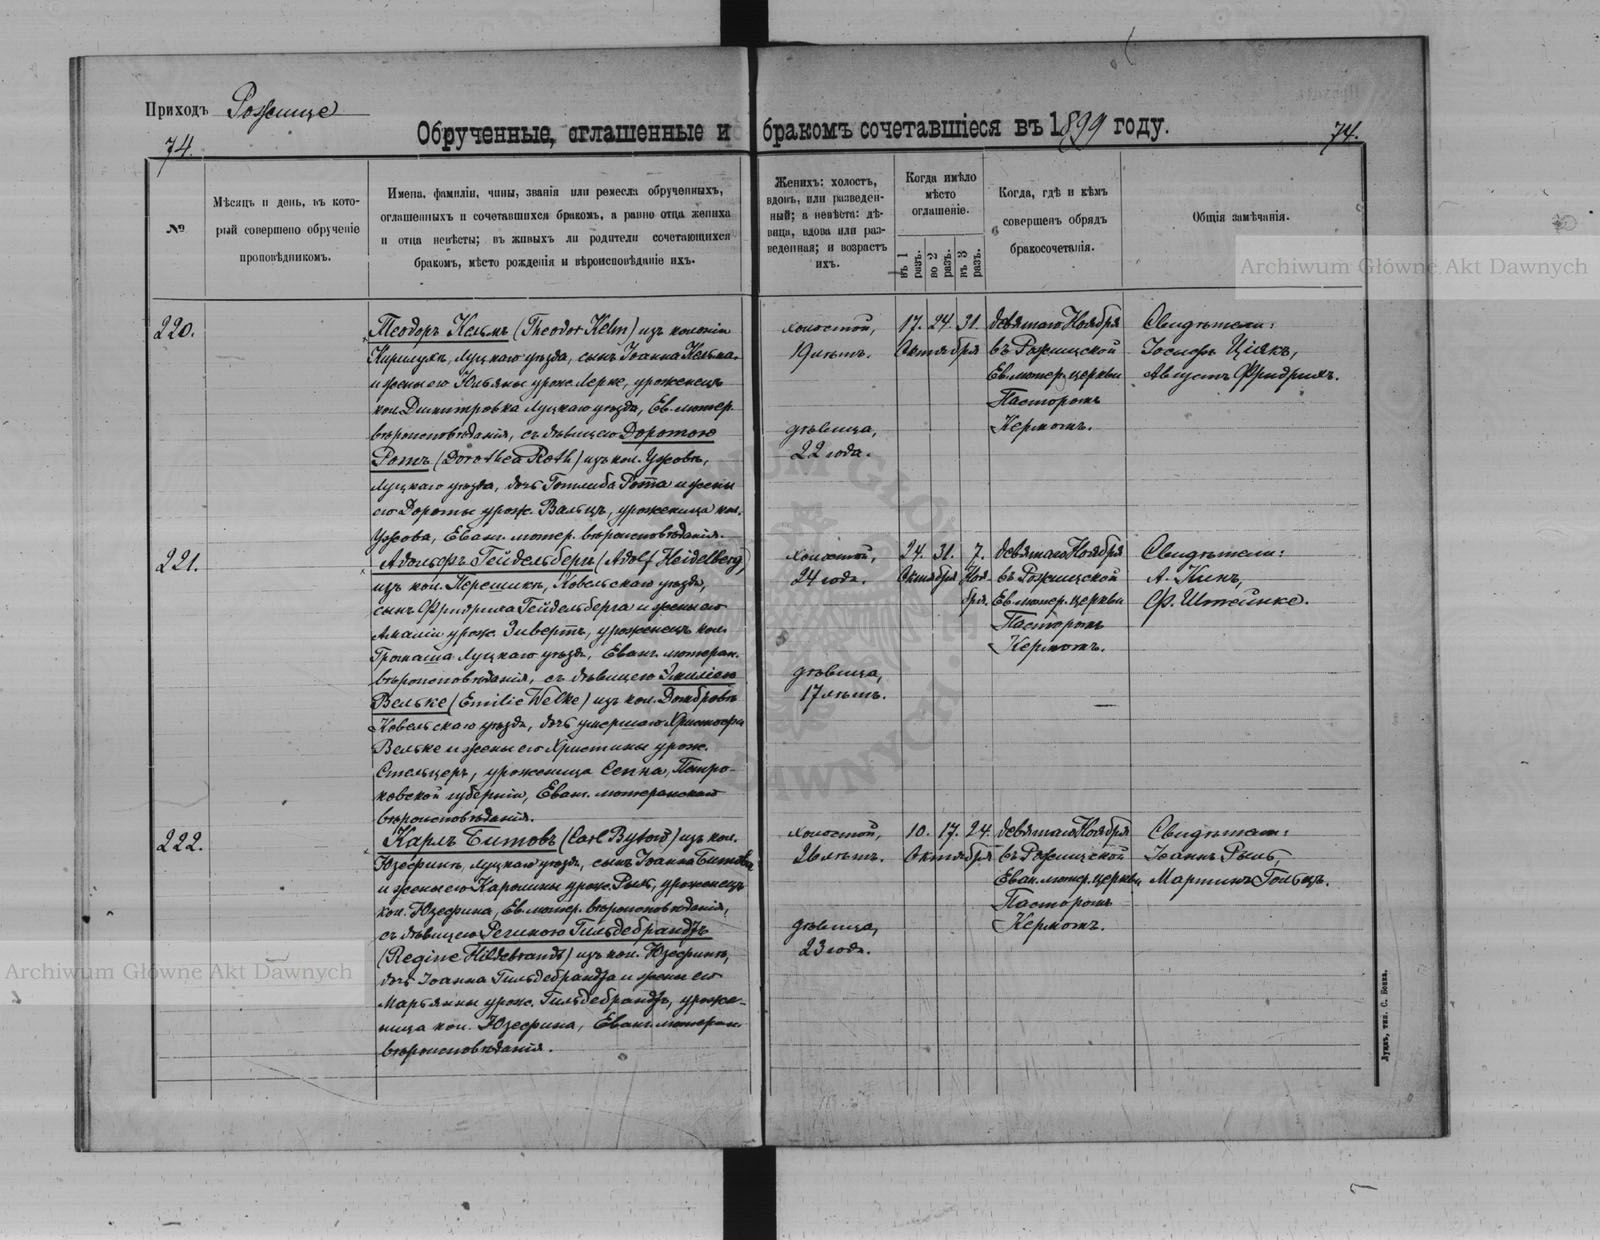 Приходъ Рожище
Обрученные, оглашенные и бракомъ сочетавшіеся въ 1899 году.
74.
74.
№
Мѣсяцъ и день, въ кото-
рый совершено обрученіе
проповѣдникомъ.
Имена, фамиліи, чины, званія или ремесла обрученныхъ,
оглашенныхъ и сочетавшихся бракомъ, а равно отца жениха
и отца невѣсты; въ живыхъ ли родители сочетающихся
бракомъ, мѣсто рожденія и вѣроисповѣданіе ихъ.
Женихъ: холостъ,
вдовъ, или разведен-
ный; а невѣста: дѣ-
вица, вдова или раз-
веденная; и возрастъ
ихъ.
Когда имѣло
мѣсто
оглашеніе.
въ 1 разъ.
во 2 разъ.
въ 3 разъ.
Когда, гдѣ и кѣмъ
совершенъ обрядъ
бракосочетанія.
Общія замѣчанія.
220.
Теодоръ Кельмъ (Theodor Kelm) изъ колоніи
Луцкаго уѣзда, сынъ Іоанна Кельма
и жены его Юльяны урож. Лерке, уроженецъ
кол. Димитровка Луцкаго уѣзда, Ев. лютер.
вѣроисповѣданія, съ дѣвицею Доротою
Ротъ (Dorothea Roth) изъ кол. Ужовъ,
Луцкаго уѣзда, дочь Готлиба Рота и жены
его Дороты урож. Вальцъ, уроженица кол.
Ужова, Еванг. лютер. вѣроисповѣданія.
холостой,
19 лѣтъ.
дѣвица,
22 года.
17. 24. 31.
Октября
девятаго Ноября
въ Рожищской
Ев. лютер. церкви
Пасторомъ
Кермомъ.
Свидѣтели:
Іосифъ Ціякъ,
Августъ Фридрихъ.
221.
Адольфъ Гейдельбергъ (Adolf Heidelberg)
изъ кол. Ковельскаго уѣзда,
сынъ Фридриха Гейдельберга и жены его
Амаліи урож. Зивертъ, уроженецъ кол.
Громаша Луцкаго уѣзда, Еванг. лютеран.
вѣроисповѣданія, съ дѣвицею Эмиліею
Вельке (Emilie Welke) изъ кол. Домбровъ
Ковельскаго уѣзда, дочь умершаго Христофа
Вельке и жены его Христины урож.
Стельцеръ, уроженица Сепна, Петро-
ковской губерніи, Еванг. лютеранскаго
вѣроисповѣданія.
холостой,
24 года.
дѣвица,
17 лѣтъ.
24. 31. 7.
Октября Ноя-
бря.
девятаго Ноября
въ Рожищской
Ев. лютер. церкви
Пасторомъ
Кермомъ.
Свидѣтели:
А. Кинъ,
Ф. Штейнке.
222.
Карлъ Битовъ (Carl Bytow) изъ кол.
Юзефинъ, Луцкаго уѣзда, сынъ Іоанна Битова
и жены его Каролины урож. Рыль, уроженецъ
кол. Юзефина, Ев. лютер. вѣроисповѣданія,
съ дѣвицею Региною Гильдебрандъ
(Regine Hildebrandt) изъ кол. Юзефинъ,
дочь Іоанна Гильдебранда и жены его
Марьянны урож. Гильдебрандъ, уроже-
ница кол. Юзефина, Еванг. лютеран.
вѣроисповѣданія.
холостой,
26 лѣтъ.
дѣвица,
23 года.
10. 17. 24.
Октября
девятаго Ноября
въ Рожищской
Еван. лютер. церкви
Пасторомъ
Кермомъ.
Свидѣтели:
Іоаннъ Рыль,
Мартинъ Гольцъ.
Луцкъ, тип. С. Бокка.
Archiwum Główne Akt Dawnych
Archiwum Główne Akt Dawnych